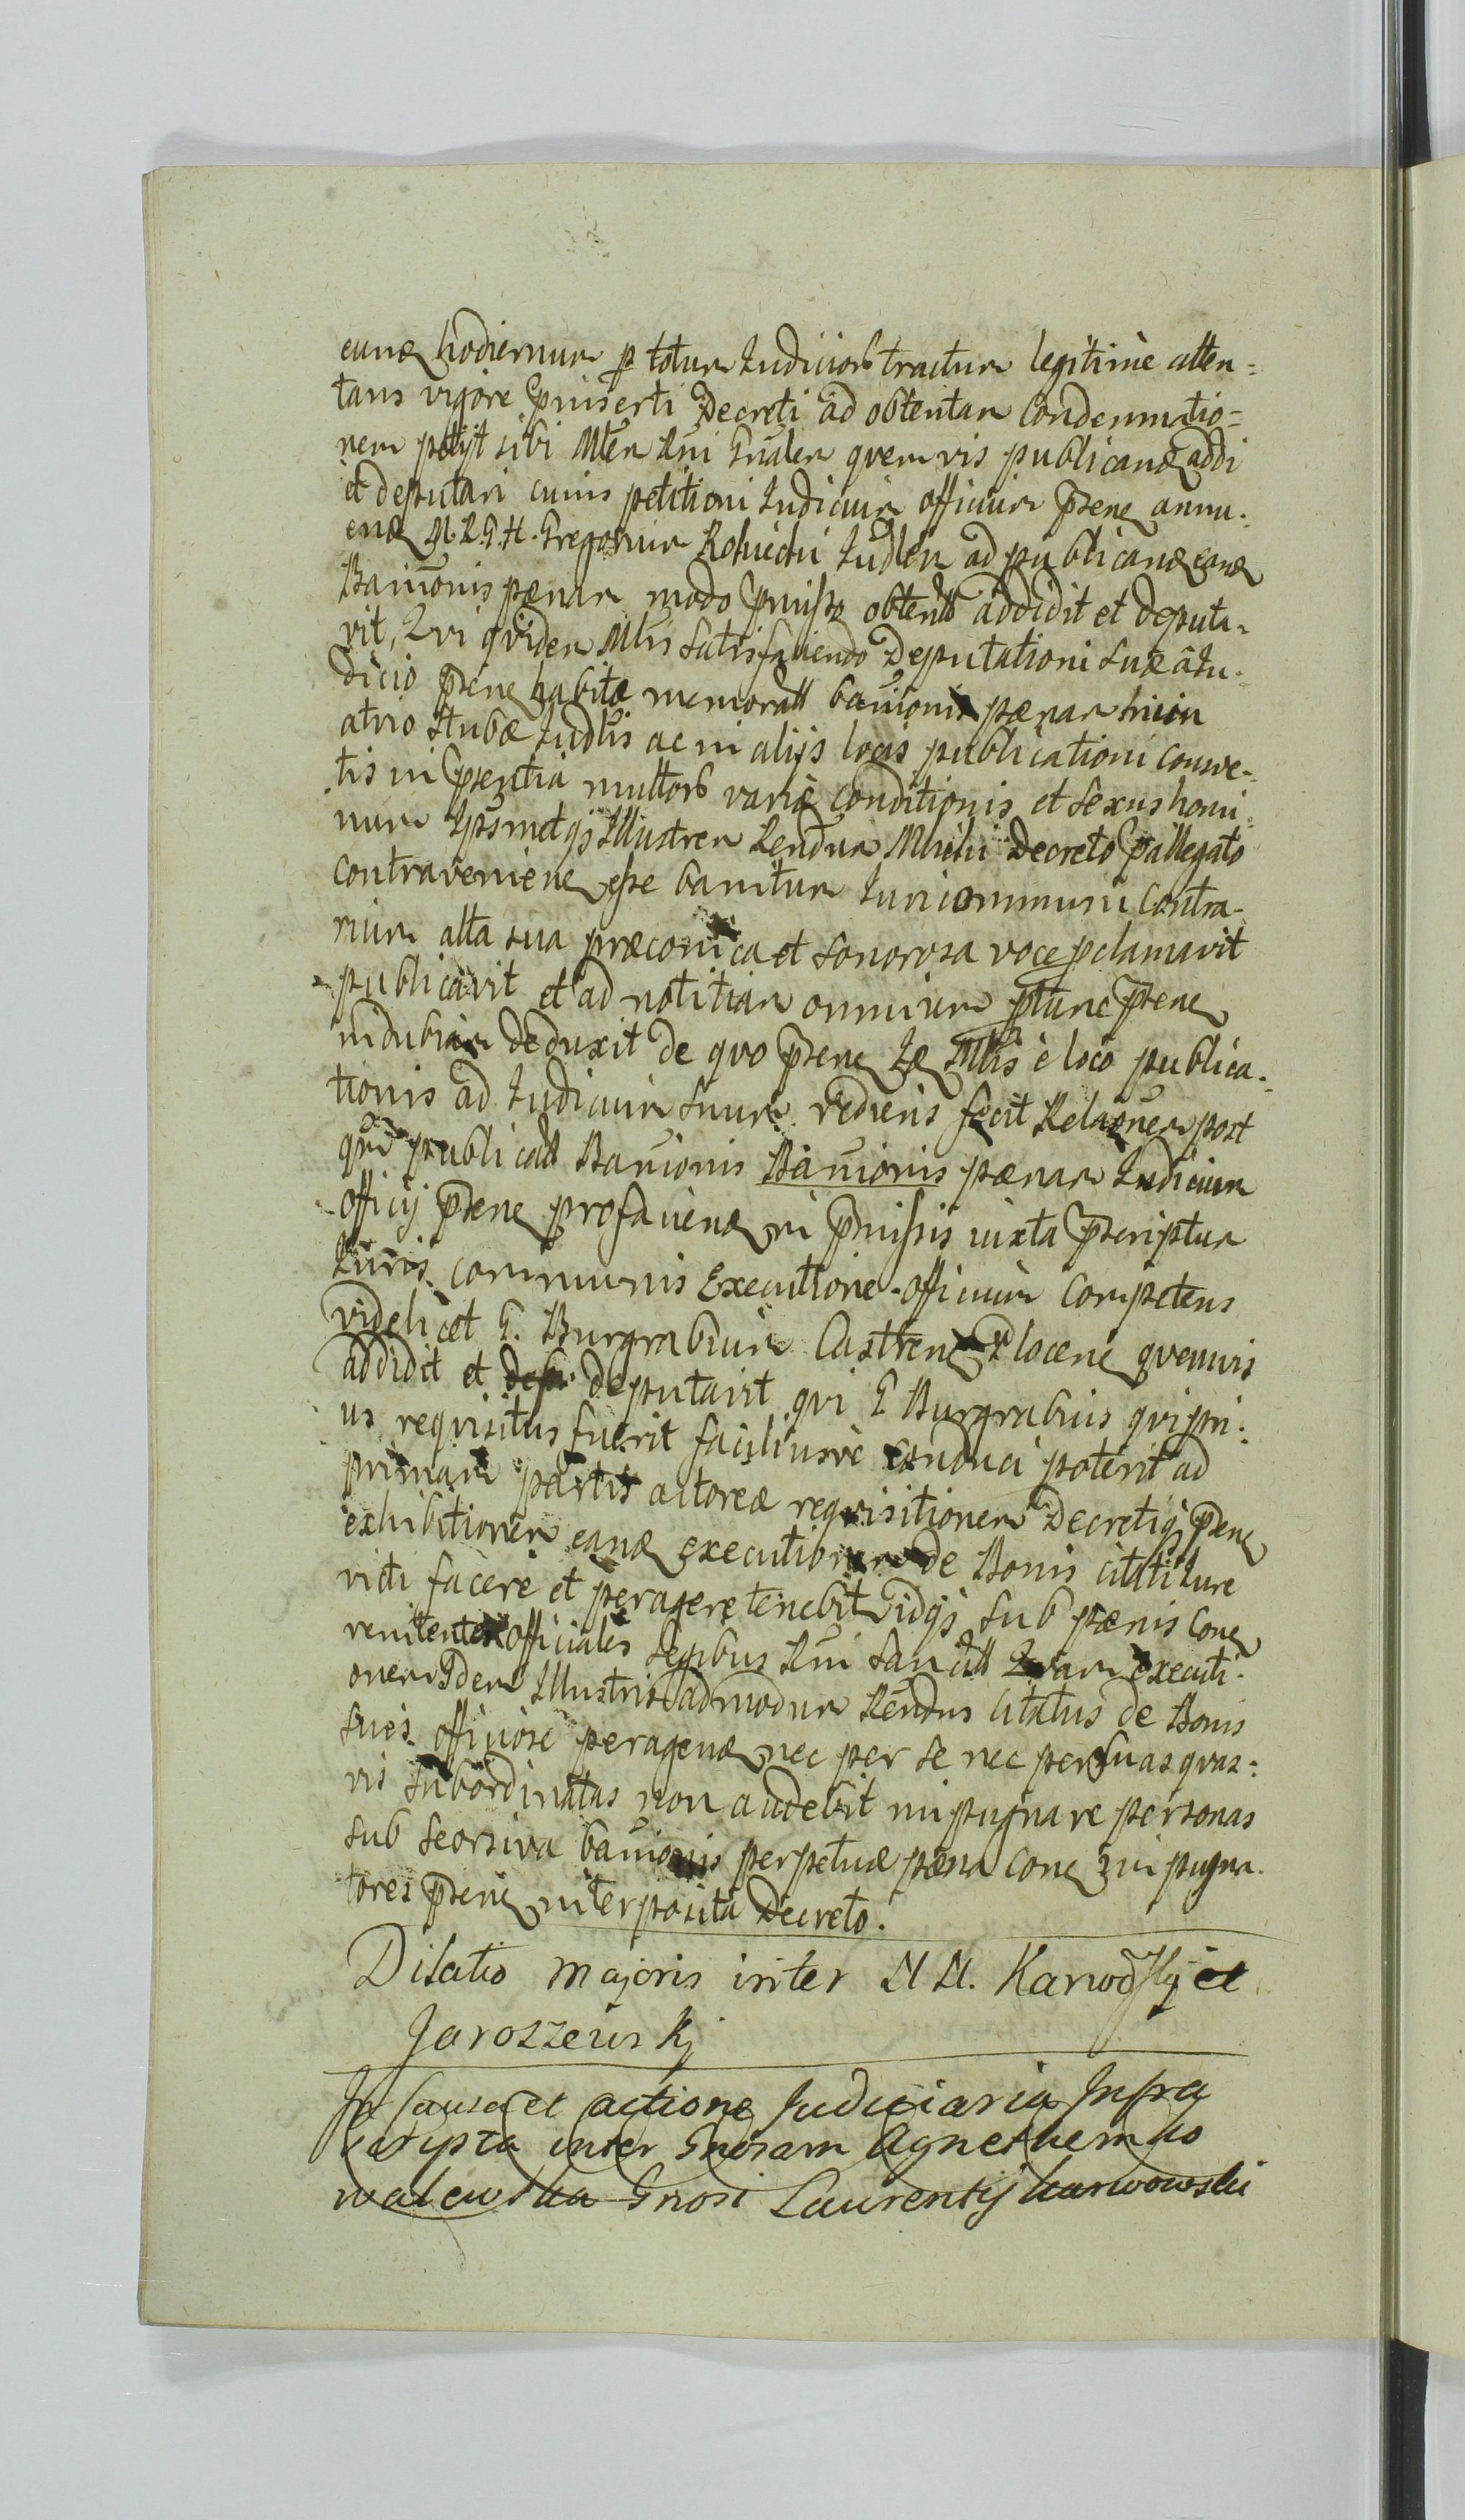 eund hodiernum p totum Judiciorb tractum legitime atten=
tans vigore pmiserti Decreti ad obtentam condemnatio=
nem petijt sibi Mtem Rni Gnalem quemvis publicand addi
et deputari cuius petitioni Judicium officium psene annu.
end M. R. G. H. Gregorium Rohicki Judlem ad publicand eand
Banionis pænam modo pmisso obtent addidit et deputa.
vit, Qvi qvidem Mtis satisfaciendo Deputationi suæ a Ju.
dicio psene habitæ memorat banionis pænam hicin
atrio stubæ Judlis ac in alijs locis publicationi consve-
tis in psentia multorb variæ conditionis et sexus homi.
num Ipsmetqs Illustrem Rendum Michi Decreto pallegato
contraveniene esse banitum Juri communi contra-
rium alta sua præconica et sonorosa voce pclamavit
publicavit et ad notitiam omnium ptunc psene
indubiam deduxit de qvo psene Id Mtis è loco publica.
tionis ad Judicium suum rediens fecit Relaonem post
qm publicat Banionis Banionis pænam Judicium
officij psene profaciend in pmissis iuxta pscriptum
Juris communis Executione officium competens
videlicet G. Burgrabium Castrene Plocene qvemvis
addidit et deputavit qvi G Burgrabius qvi pri.
us reqvisitus fuerit faciliusvè conduci poterit ad
primam partis actoreæ reqvisitionem Decretiqs psene
exhibitionem eand executionem de Bonis citati Jure
victi facere et peragere tenebit idqs sub pænis cone
renitentes officiales legibus Rni sancit Qvam executi.
onem Idem Illustris admodum Rendus citatus de Bonis
suis officiose peragend nec per se nec per suas qvas=
vis subordinatas non audebit impugnare personas
sub seorsiva banionis perpetuæ pæna cone impugna.
tores psene interposita Decreto.
Dilatio majoris inter M M. Karwosky et
Jaroszewskj
In Causa et actione Judiciaria Infra
scripta inter Gnosam Agnethem Ko
walewska Gnosi Laurentij karwowski